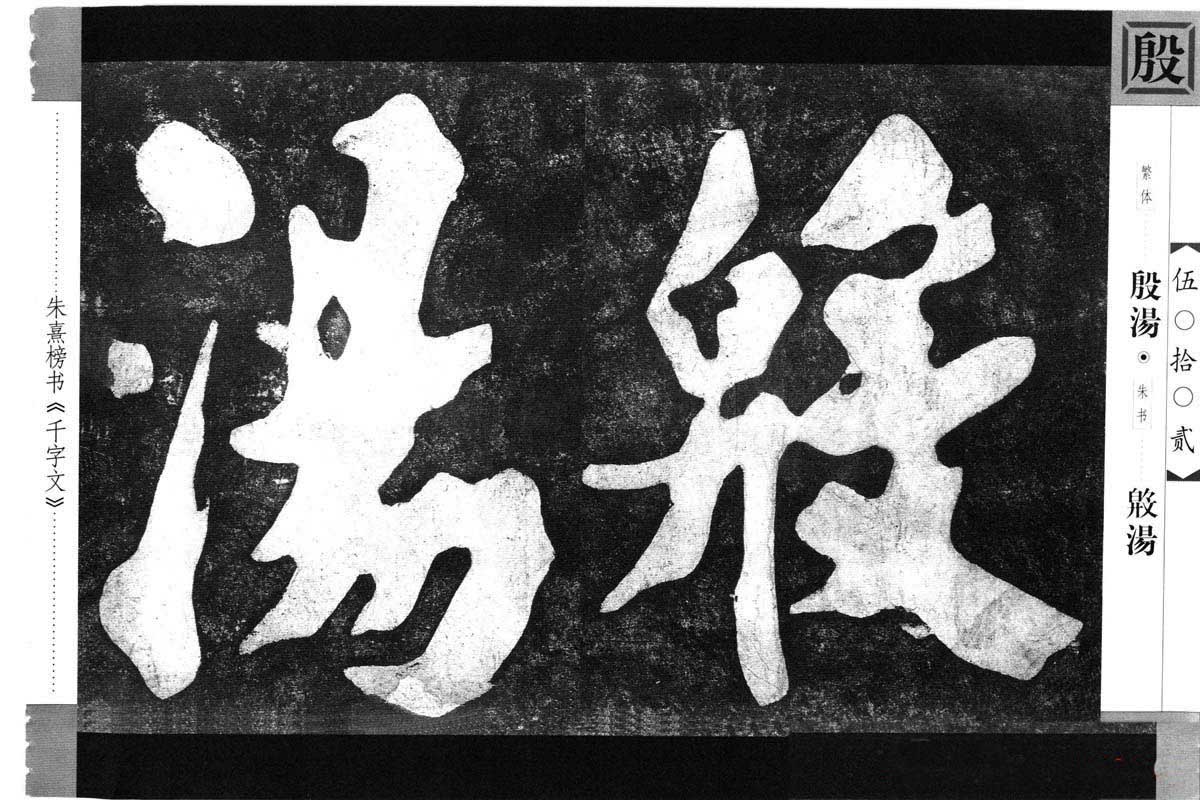 殷
伍〇拾〇贰
繁体
殷湯
朱书
湯
殷湯
朱熹榜书《千字文》